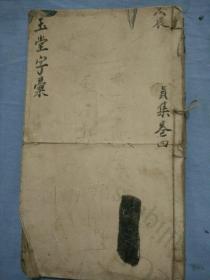 貞集卷四
玉堂字彙